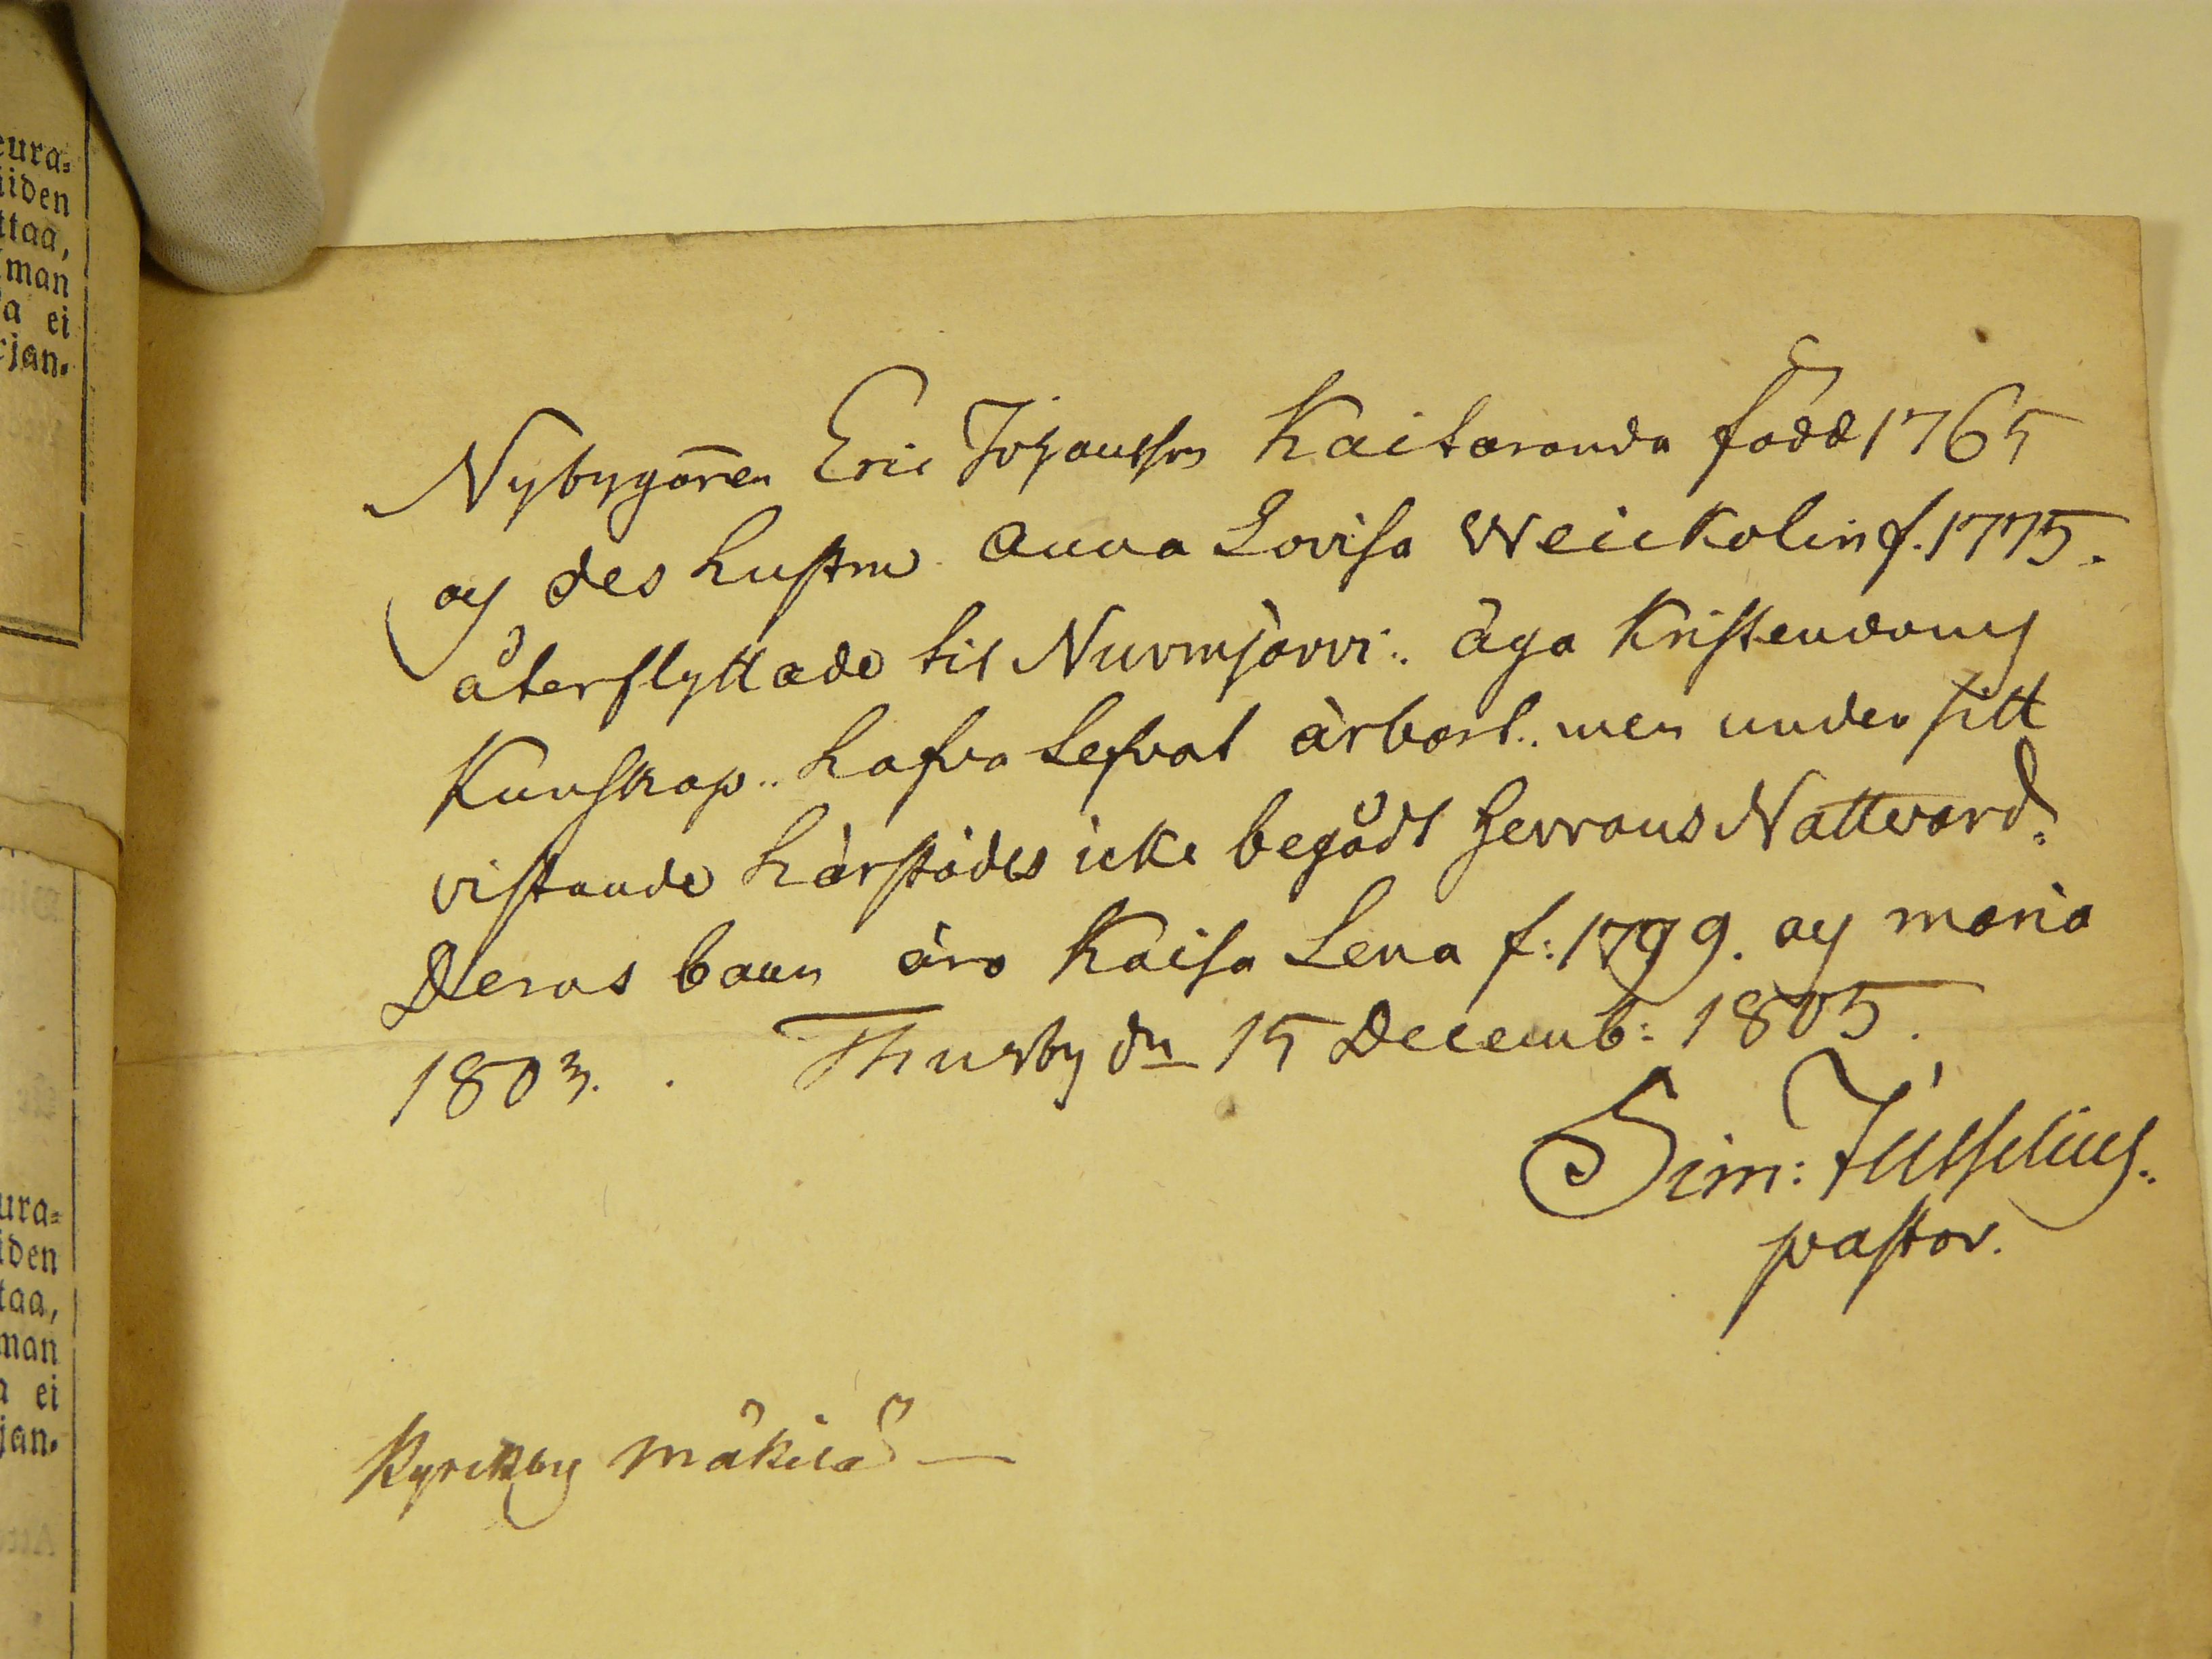 eura-
iiden
ttaa,
man
a ei
rjan-
Nybygaren Eric Johansson Kaitaranda född 1765
och des hustru Anna Lovisa Weickolin f. 1775.
återflyttade til Nurmjärvi: äga Kristendoms
Kunskap.. hafva lefvat ärbarl.. men under sitt
vistande härstädes icke begådt Herrans Nattvard.
Deras barn äro Kaisa Lena f: 1799. och Maria
1803. Thusby dn 15 Decemb: 1805.
Sim:
pastor.
ura-
iden
taa,
man
a ei
jan-
Kyrckby Mäkilä